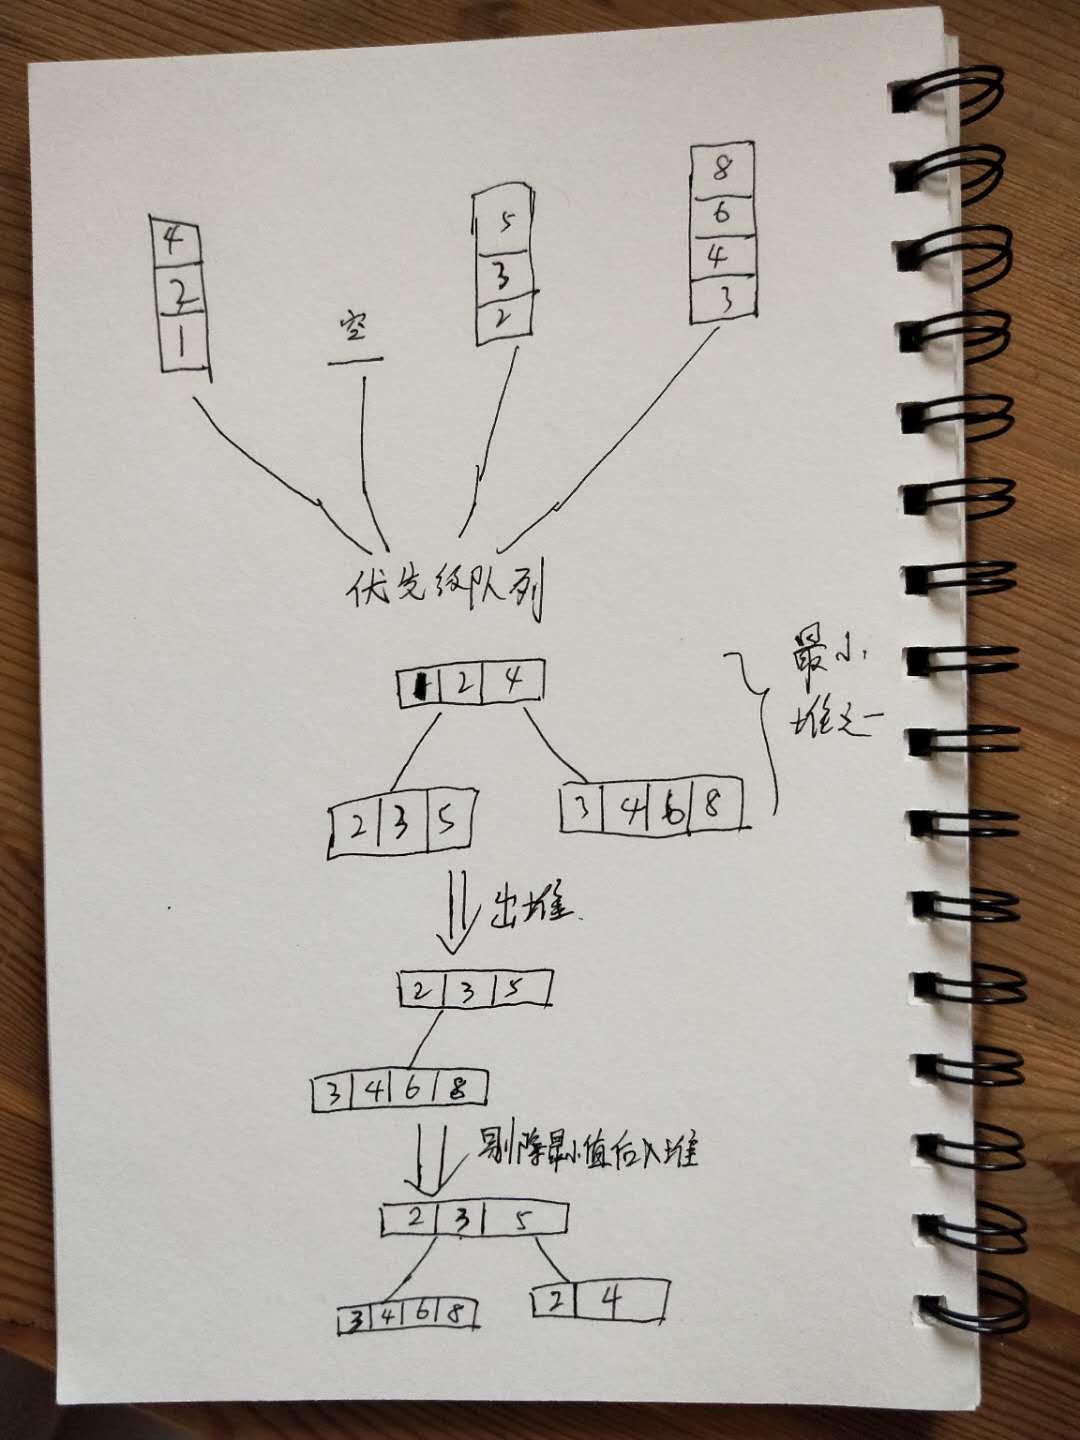 4
2
1
空
5
3
2
8
6
4
3
优先级队列
1 2 4
最小
堆之一
2 3 5
3 4 6 8
出堆
2 3 5
3 4 6 8
剔除最小值后入堆
2 3 5
3 4 6 8
2 4